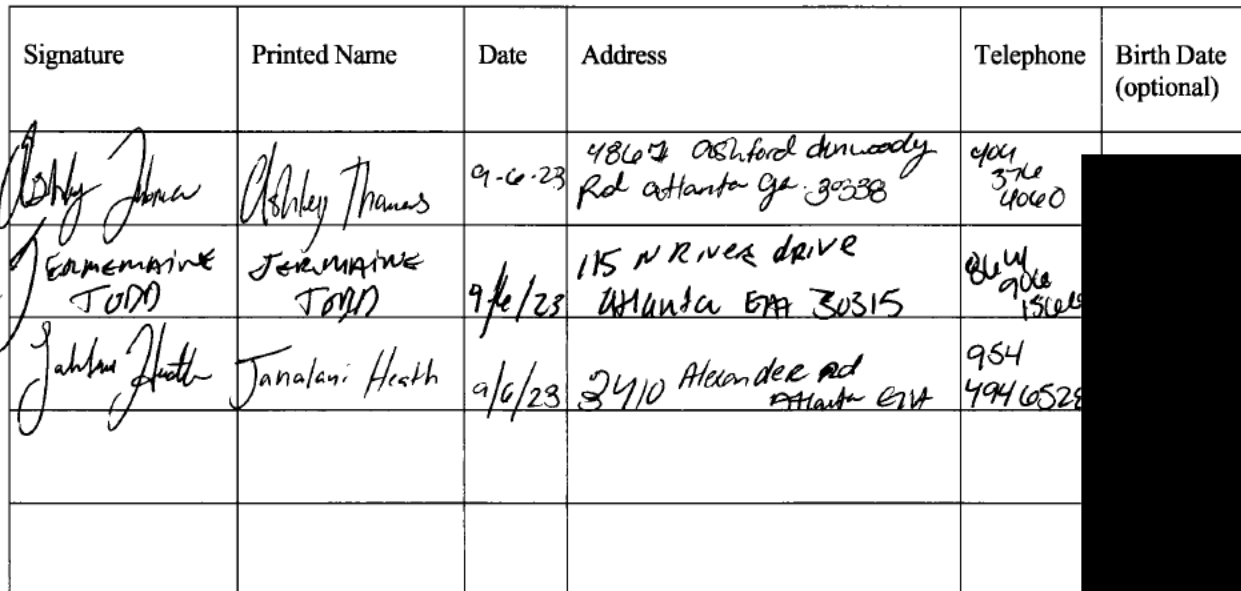 Signature Printed Name Date Address Telephone Birth Date
(optional)
Ashley Thomas Ashley Thomas 9-6-23 4867 Ashford dunwoody
Rd atlanta ga. 30338
404
376
4060
JERMEMAINE JERMAINE 9/6/23 115 N RIVER dRIVE
TODD TODD Atlanta GA 30315
906
Heath Janalani Heath 9/6/23 2410 Alexander Rd
Atlanta GA
954
4946528